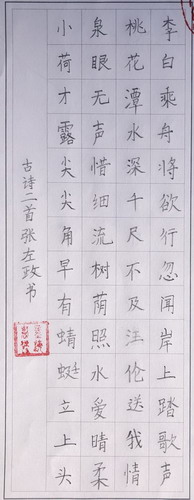 李白乘舟将欲行忽闻岸上踏歌声
桃花潭水深千尺不及汪伦送我情
泉眼无声惜细流树荫照水爱晴柔
小荷才露尖尖角早有蜻蜓立上头
古诗二首张左政书